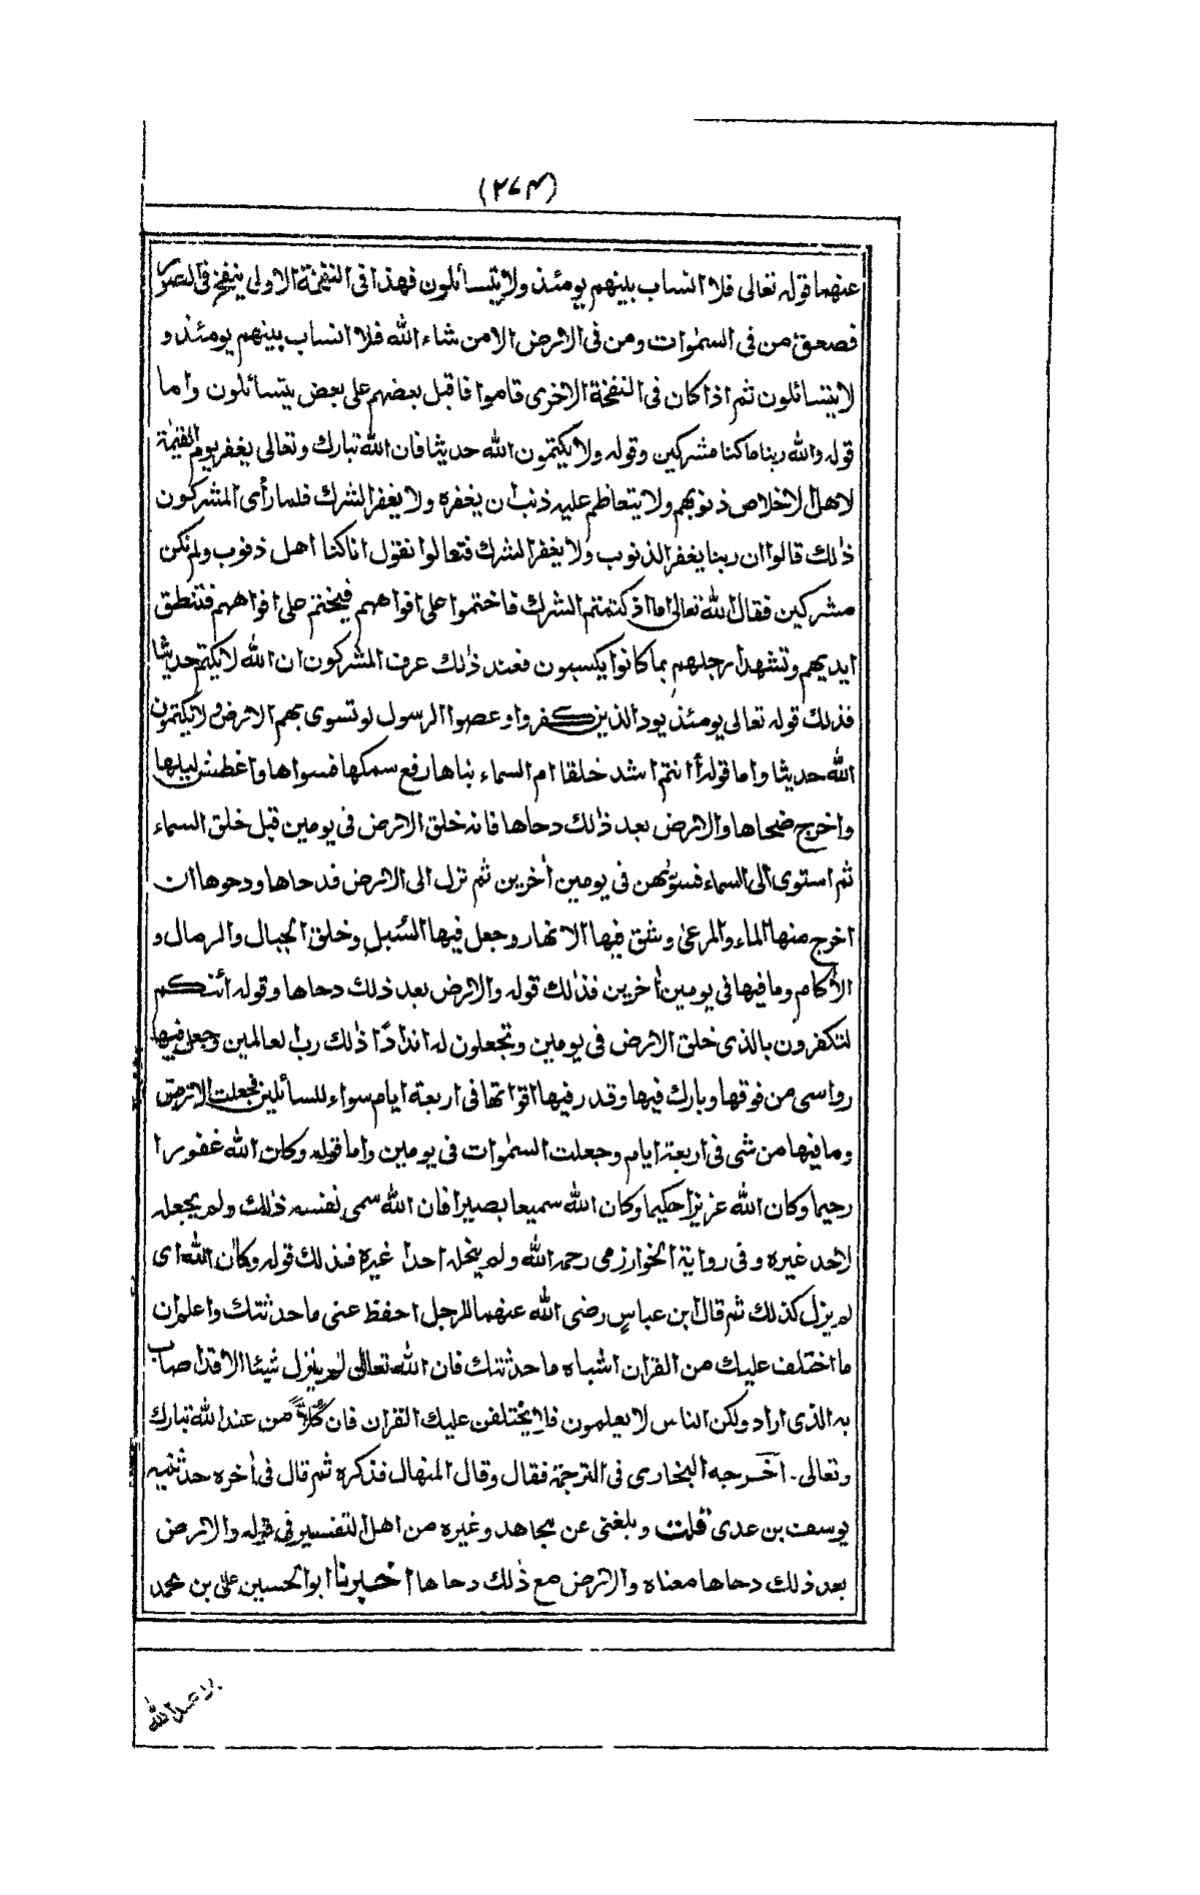 (٢٧٤)
عنهما قوله تعالى فلا انساب بينهم يومئذ ولا يتسائلون فهذا فى النفخة الاولى ينفخ فى الصور
فصعق من فى السمٰوات ومن فى الارض الا من شاء الله فلا انساب بينهم يومئذ و
لا يتسائلون ثم اذا كان فى النفخة الاخرى قاموا فاقبل بعضهم على بعض يتسائلون واما
قوله والله ربنا ما كنا مشركين وقوله ولا يكتمون الله حديثا فان الله تبارك وتعالى يغفر يوم القيٰمة
لاهل الاخلاص ذنوبهم ولا يتعاظم عليه ذنب ان يغفره ولا يغفر الشرك فلما رأى المشركون
ذٰلك قالوا ان ربنا يغفر الذنوب ولا يغفر الشرك فتعالوا نقول انا كنا اهل ذنوب ولم نكن
مشركين فقال الله تعالى اما اذ كتمتم الشرك فاختموا على افواههم فيختم على افواههم فتنطق
ايديهم وتشهد ارجلهم بما كانوا يكسبون فعند ذٰلك عرف المشركون ان الله لا يكتم حديثا
فذلك قوله تعالى يومئذ يود الذين كفروا وعصوا الرسول لو تسوى بهم الارض ولا يكتمون
الله حديثا واما قوله أانتم اشد خلقا ام السماء بناها رفع سمكها فسواها واغطش ليلها
واخرج ضحاها والارض بعد ذٰلك دحاها فانه خلق الارض فى يومين قبل خلق السماء
ثم استوى الى السماء فسوٰهن فى يومين اٰخرين ثم نزل الى الارض فدحاها ودحوها ان
اخرج منها الماء والمرعى وشق فيها الانهار وجعل فيها السُبل وخلق الجبال والرمال و
الأكام وما فيها فى يومين اٰخرين فذٰلك قوله والارض بعد ذلك دحاها وقوله ائنكم
لتكفرون بالذى خلق الارض فى يومين وتجعلون له اندادًا ذٰلك رب العالمين وجعل فيها
رواسى من فوقها وبارك فيها وقدر فيها اقواتها فى اربعة ايام سواء للسائلين فجعلت الارض
وما فيها من شى فى اربعة ايام وجعلت السمٰوات فى يومين واما قوله وكان الله غفورا
رحيما وكان الله عزيزا حكيما وكان الله سميعا بصيرا فان الله سمى نفسه ذٰلك ولم يجعله
لاحد غيره وفى رواية الخوارزمى رحمه الله ولم ينحله احدا غيره فذلك قوله وكان الله اى
لم يزل كذلك ثم قال ابن عباسٍ رضى الله عنهما للرجل احفظ عنى ما حدثتك واعلم ان
ما اختلف عليك من القرٰان اشباه ما حدثتك فان الله تعالى لم ينزل شيئا الا قد اصاب
به الذى اراد ولكن الناس لا يعلمون فلا يختلفن عليك القرٰان فان كُلاًّ من عند الله تبارك
وتعالى۔ اخرجه البخارى فى الترجمة فقال وقال المنهال فذكره ثم قال فى اٰخره حدثنيه
يوسف بن عدى قلت وبلغنى عن مجاهد وغيره من اهل التفسير فى قوله والارض
بعد ذلك دحاها معناه والارض مع ذٰلك دحاها اخبرنا ابو الحسين على بن محمد
بن عبدالله